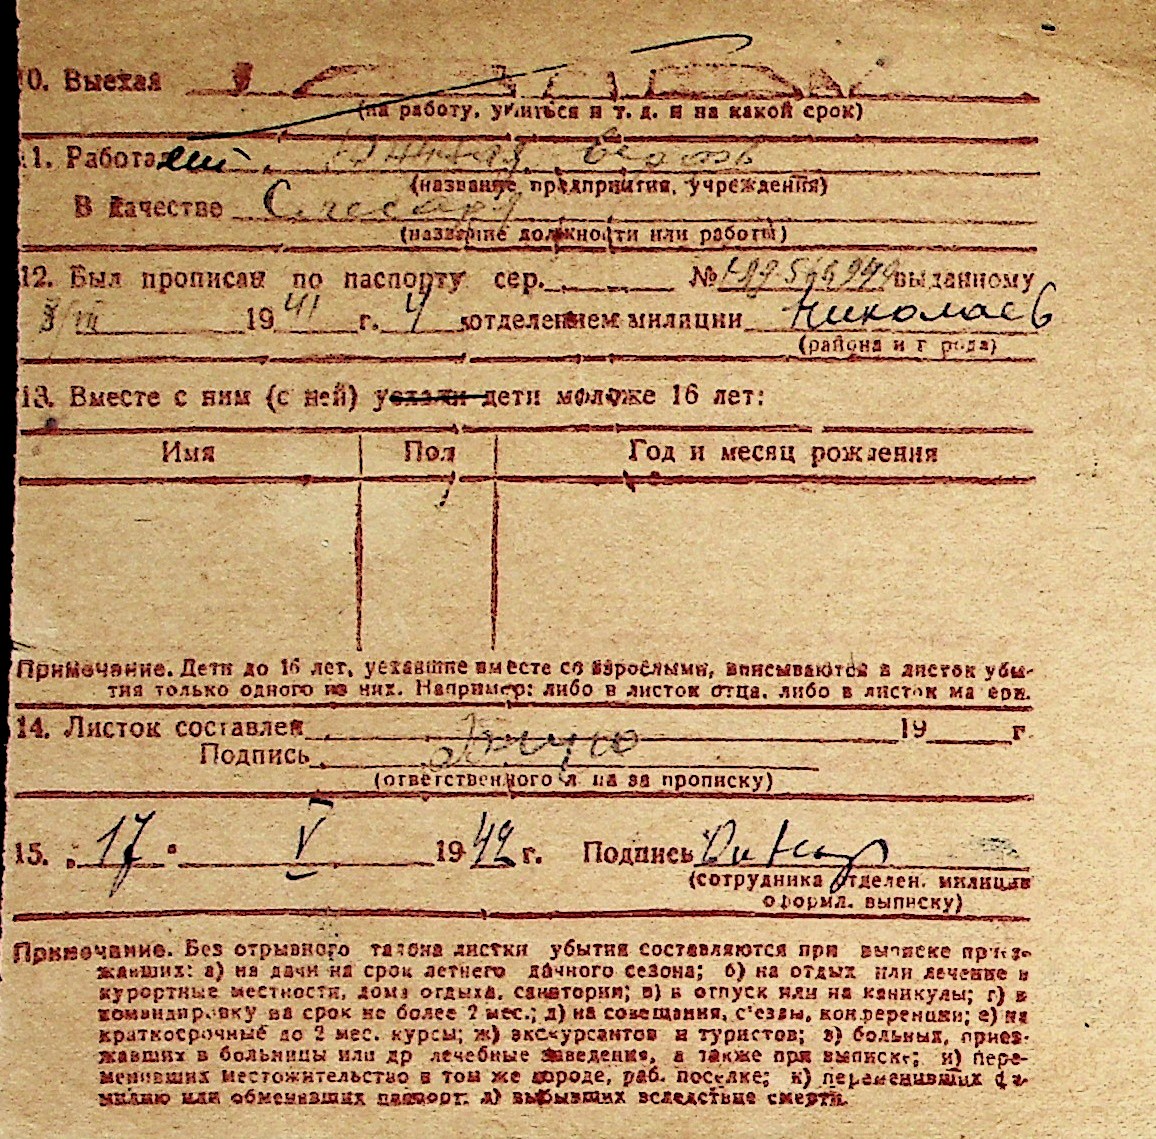 10. Выехал
(на работу, учиться и т. д. и на какой срок)
11. Работает
(название предприятия, учреждения)
В качестве Слесаря
(название должности или работы)
12. Был прописан по паспорту сер. № выданному
1941 г. 4 отделением милиции Николаев
(района и города)
13. Вместе с ним (с ней) уехали дети моложе 16 лет:
Имя Пол Год и месяц рождения
Примечание. Дети до 16 лет, уехавшие вместе со взрослыми, вписываются в листок убы-
тия только одного из них. Например: либо в листок отца, либо в листок матери.
14. Листок составлен 19 г
Подпись
(ответственного лица за прописку)
15. „17" V 1942 г. Подпись
(сотрудника отделен. милиции
оформл. выписку)
Примечание. Без отрывного талона листки убытия составляются при выписке приез-
жавших: а) на дачи на срок летнего дачного сезона; б) на отдых или лечение в
курортные местности, дома отдыха, санатории; в) в отпуск или на каникулы; г) в
командировку на срок не более 2 мес.; д) на совещания, с'езды, конференции; е) на
краткосрочные до 2 мес. курсы; ж) экскурсантов и туристов; з) больных, приез-
жавших в больницы или др лечебные заведения, а также при выписке; и) пере-
менивших местожительство в том же городе, раб. поселке; к) переменивших фа-
милию или обменявших паспорт; л) выбывших вследствие смерти.